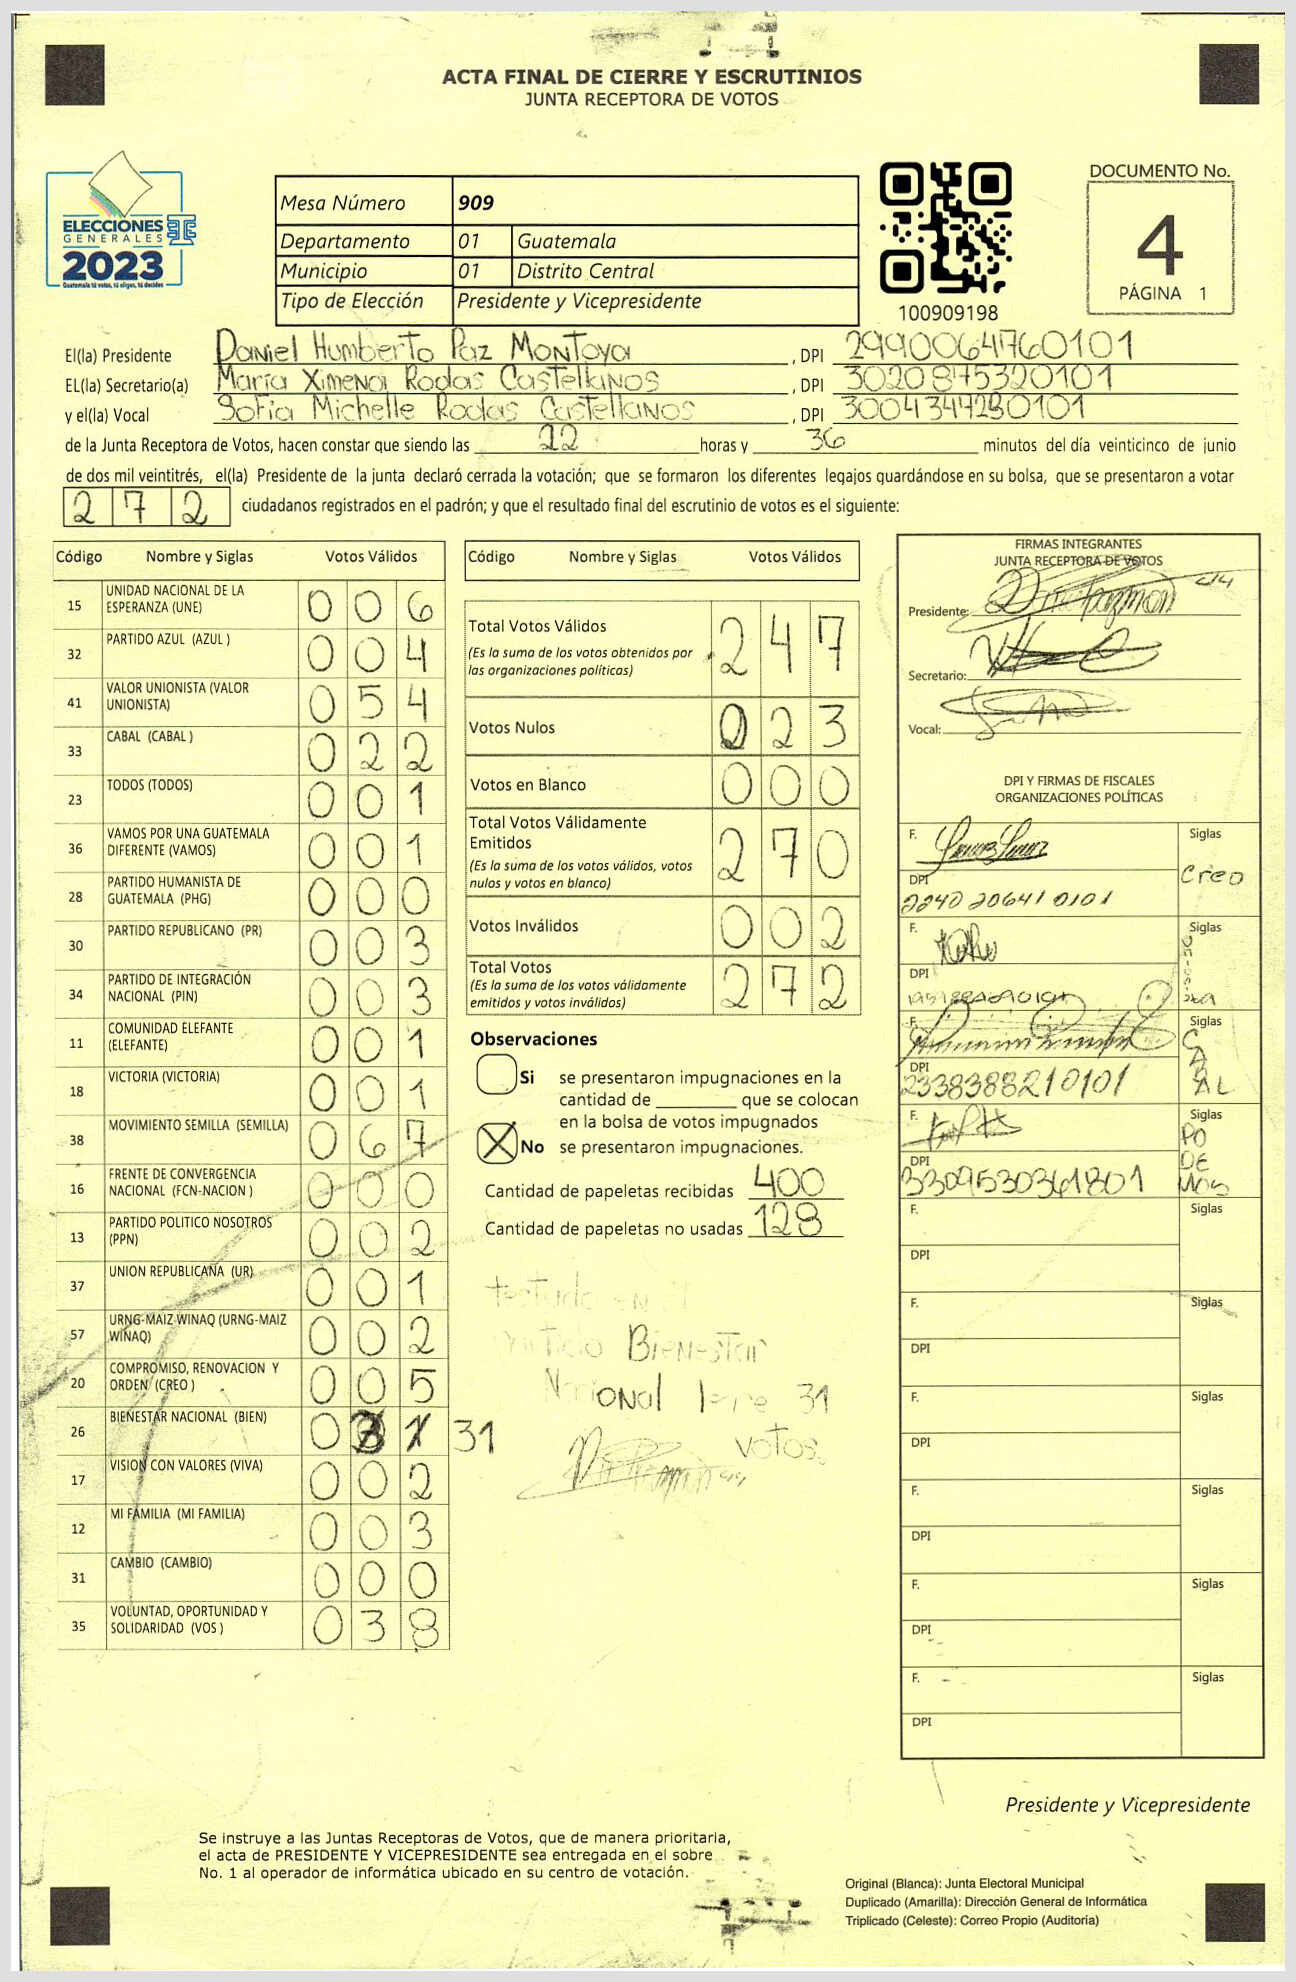 ACTA FINAL DE CIERRE Y ESCRUTINIOS
JUNTA RECEPTORA DE VOTOS
ELECCIONES
GENERALES
2023
Guatemala tú votas, tú eliges, tú decides
Mesa Número 909
Departamento 01 Guatemala
Municipio 01 Distrito Central
Tipo de Elección Presidente y Vicepresidente
100909198
DOCUMENTO No.
4
PÁGINA 1
El(la) Presidente Daniel Humberto Paz Montoya, DPI 2990064760101
EL(la) Secretario(a) María Ximena Rodas Castellanos, DPI 3020875320101
y el(la) Vocal Sofía Michelle Rodas Castellanos, DPI 3004347280101
de la Junta Receptora de Votos, hacen constar que siendo las 22 horas y 36 minutos del día veinticinco de junio
de dos mil veintitrés, el(la) Presidente de la junta declaró cerrada la votación; que se formaron los diferentes legajos guardándose en su bolsa, que se presentaron a votar
272 ciudadanos registrados en el padrón; y que el resultado final del escrutinio de votos es el siguiente:
Código Nombre y Siglas Votos Válidos
15 UNIDAD NACIONAL DE LA ESPERANZA (UNE) 006
32 PARTIDO AZUL (AZUL ) 004
41 VALOR UNIONISTA (VALOR UNIONISTA) 054
33 CABAL (CABAL ) 022
23 TODOS (TODOS) 001
36 VAMOS POR UNA GUATEMALA DIFERENTE (VAMOS) 001
28 PARTIDO HUMANISTA DE GUATEMALA (PHG) 000
30 PARTIDO REPUBLICANO (PR) 003
34 PARTIDO DE INTEGRACIÓN NACIONAL (PIN) 003
11 COMUNIDAD ELEFANTE (ELEFANTE) 001
18 VICTORIA (VICTORIA) 001
38 MOVIMIENTO SEMILLA (SEMILLA) 067
16 FRENTE DE CONVERGENCIA NACIONAL (FCN-NACION ) 000
13 PARTIDO POLITICO NOSOTROS (PPN) 002
37 UNION REPUBLICANA (UR) 001
57 URNG-MAIZ-WINAQ (URNG-MAIZ WINAQ) 002
20 COMPROMISO, RENOVACION Y ORDEN (CREO ) 005
26 BIENESTAR NACIONAL (BIEN) 031 31
17 VISION CON VALORES (VIVA) 002
12 MI FAMILIA (MI FAMILIA) 003
31 CAMBIO (CAMBIO) 000
35 VOLUNTAD, OPORTUNIDAD Y SOLIDARIDAD (VOS ) 038
Código Nombre y Siglas Votos Válidos
Total Votos Válidos 247
(Es la suma de los votos obtenidos por
las organizaciones políticas)
Votos Nulos 023
Votos en Blanco 000
Total Votos Válidamente
Emitidos 270
(Es la suma de los votos válidos, votos
nulos y votos en blanco)
Votos Inválidos 002
Total Votos 272
(Es la suma de los votos válidamente
emitidos y votos inválidos)
Observaciones
Si se presentaron impugnaciones en la
cantidad de ________ que se colocan
en la bolsa de votos impugnados
X No se presentaron impugnaciones.
Cantidad de papeletas recibidas 400
Cantidad de papeletas no usadas 128
testado en
Partido Bienestar
Nacional 31
votos
FIRMAS INTEGRANTES
JUNTA RECEPTORA DE VOTOS
Presidente:
Secretario:
Vocal:
DPI Y FIRMAS DE FISCALES
ORGANIZACIONES POLÍTICAS
F. Siglas
Creo
DPI
2240 20641 0101
F. Siglas
DPI
F. Siglas
CABAL
DPI
2338388210101
F. Siglas
PODEMOS
DPI
3309530361801
F. Siglas
DPI
F. Siglas
DPI
F. Siglas
DPI
F. Siglas
DPI
F. Siglas
DPI
F. Siglas
DPI
Presidente y Vicepresidente
Se instruye a las Juntas Receptoras de Votos, que de manera prioritaria,
el acta de PRESIDENTE Y VICEPRESIDENTE sea entregada en el sobre
No. 1 al operador de informática ubicado en su centro de votación.
Original (Blanca): Junta Electoral Municipal
Duplicado (Amarilla): Dirección General de Informática
Triplicado (Celeste): Correo Propio (Auditoría)